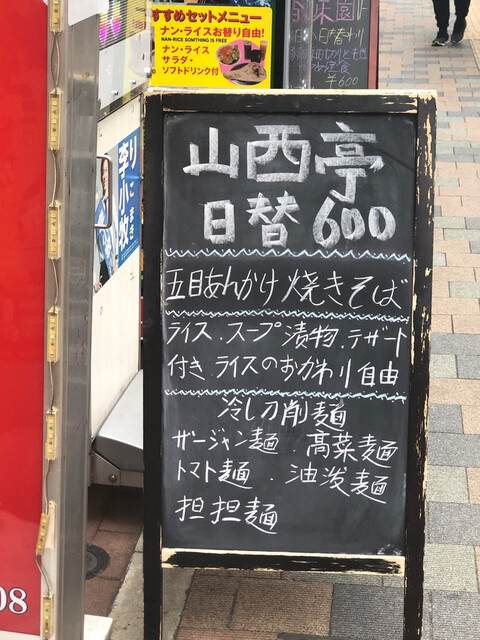 すすめセットメニュー
ナン・ライスお替り自由!
NAN-RICE SOMTHING IS FREE
ナン・ライス
サラダ・
ソフトドリンク付
味園
日替わり
定食
¥600
りこまき
李小牧
山西亭
日替600
五目あんかけ焼きそば
ライス.スープ漬物.デザート
付き.ライスのおかわり自由
冷し刀削麺
ザージャン麺.高菜麺
トマト麺.油泼麺
担担麺
08